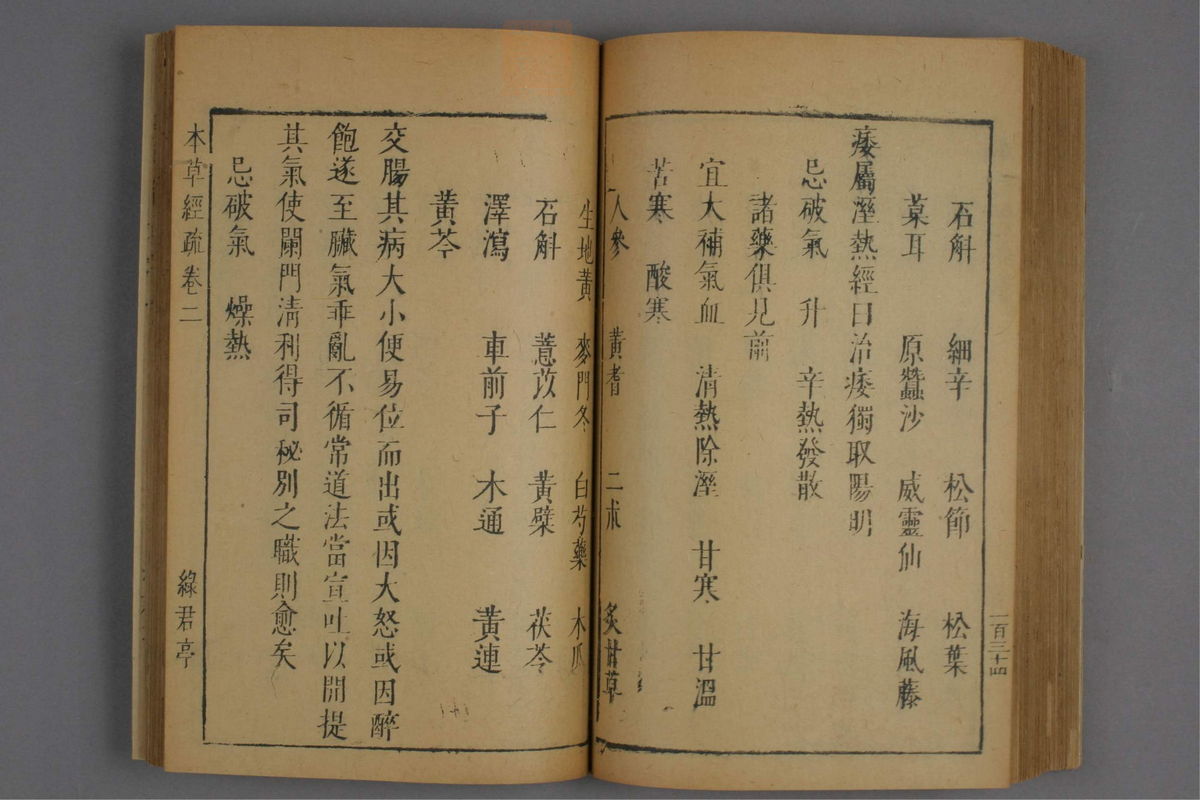 一百三十四
石斛　細辛　松節　松葉
菒耳　原蠶沙　威靈仙　海風藤
痿屬溼熱經曰治痿獨取陽明
忌破氣　升　辛熱發散
諸藥俱見前
宜大補氣血　清熱除溼　甘寒　甘溫
苦寒　酸寒
人參　黃耆　二朮　炙甘草
生地黃　麥門冬　白芍藥　木瓜
石斛　薏苡仁　黃檗　茯苓
澤瀉　車前子　木通　黃連
黃芩
交腸其病大小便易位而出或因大怒或因醉
飽遂至臟氣乖亂不循常道法當宣吐以開提
其氣使闌門清利得司秘別之職則愈矣
忌破氣　燥熱
本草經疏卷二　綠君亭